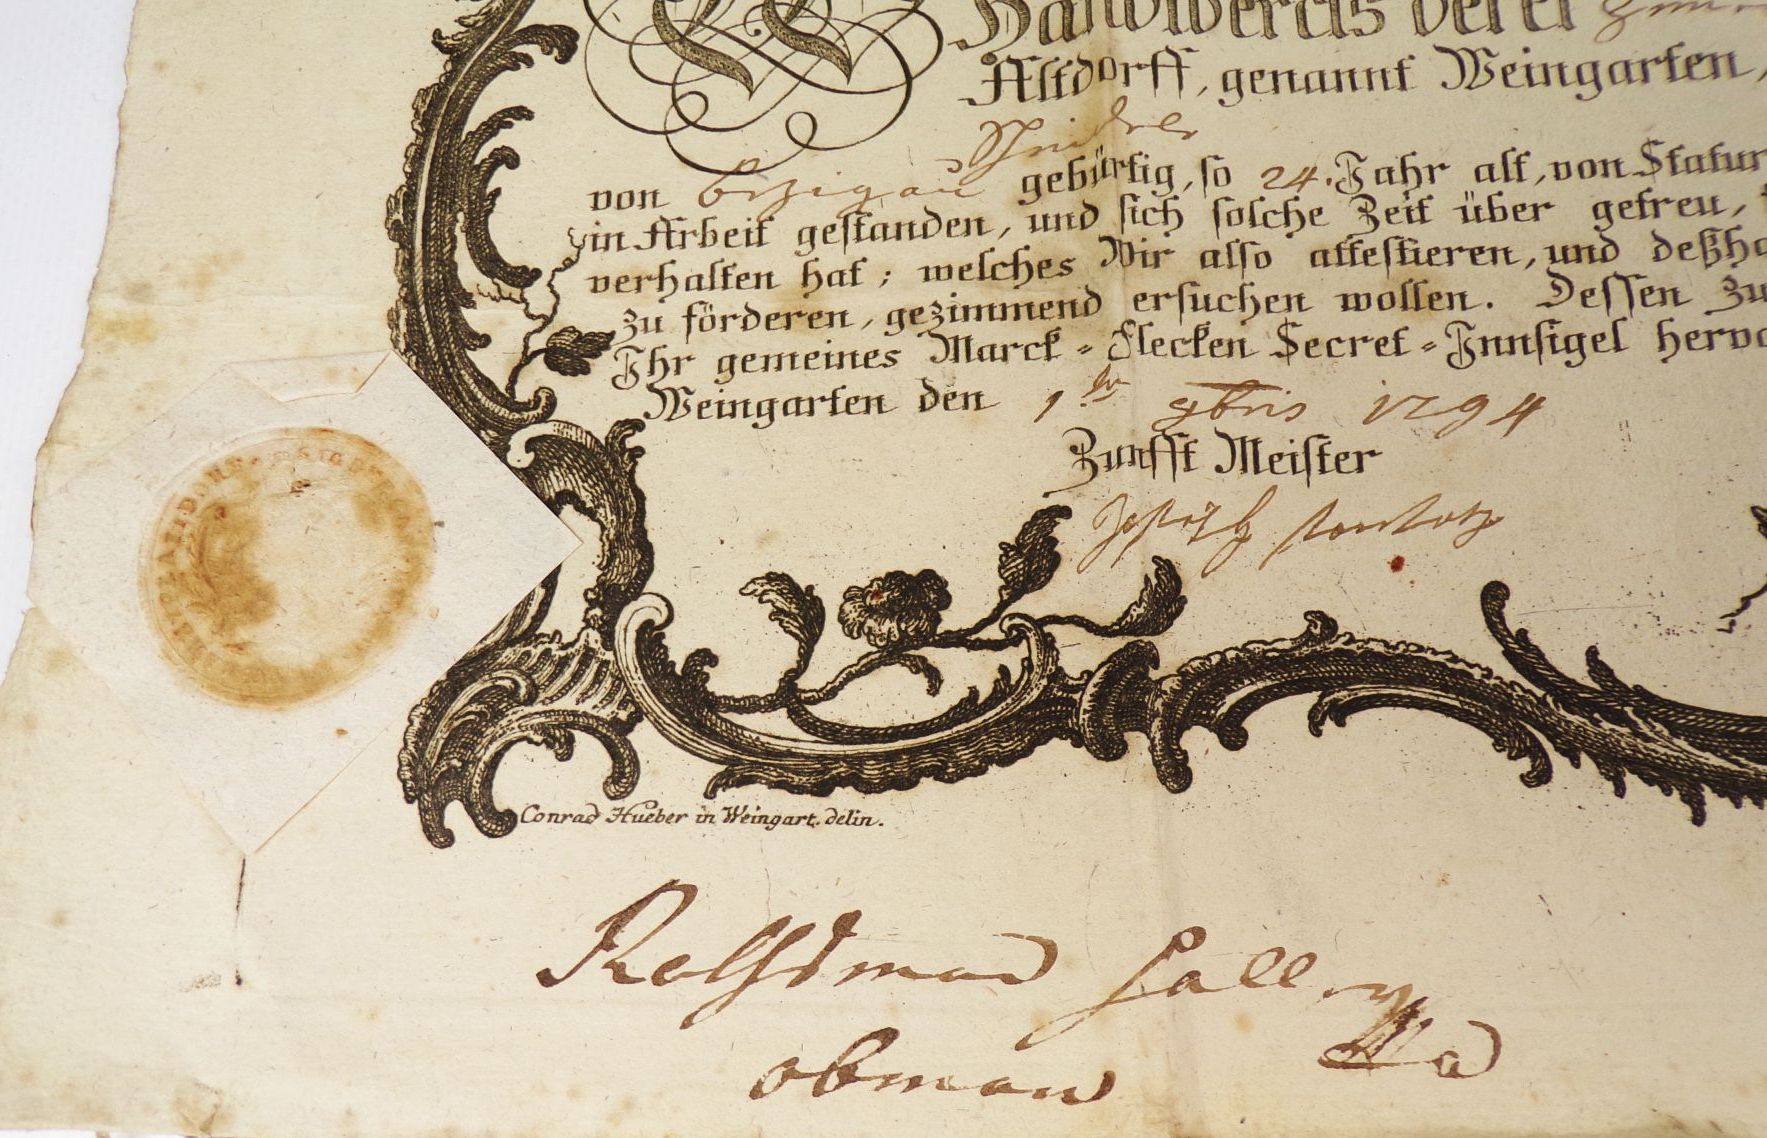 Handwercks derer
Altdorff, genannt Weingarten,
von bezigau gebürtig, so 24. Jahr alt, von Statur
in Arbeit gestanden, und sich solche Zeit über getreu,
verhalten hat; welches Wir also attestieren, und deßha
zu förderen, gezimmend ersuchen wollen. Dessen zu
Ihr gemeines Marck-Flecken Secret-Innsigel hervo
Weingarten den 1ten 9bris 1794
Zunfft Meister
Joseph
Conrad Hueber in Weingart. delin.
obman